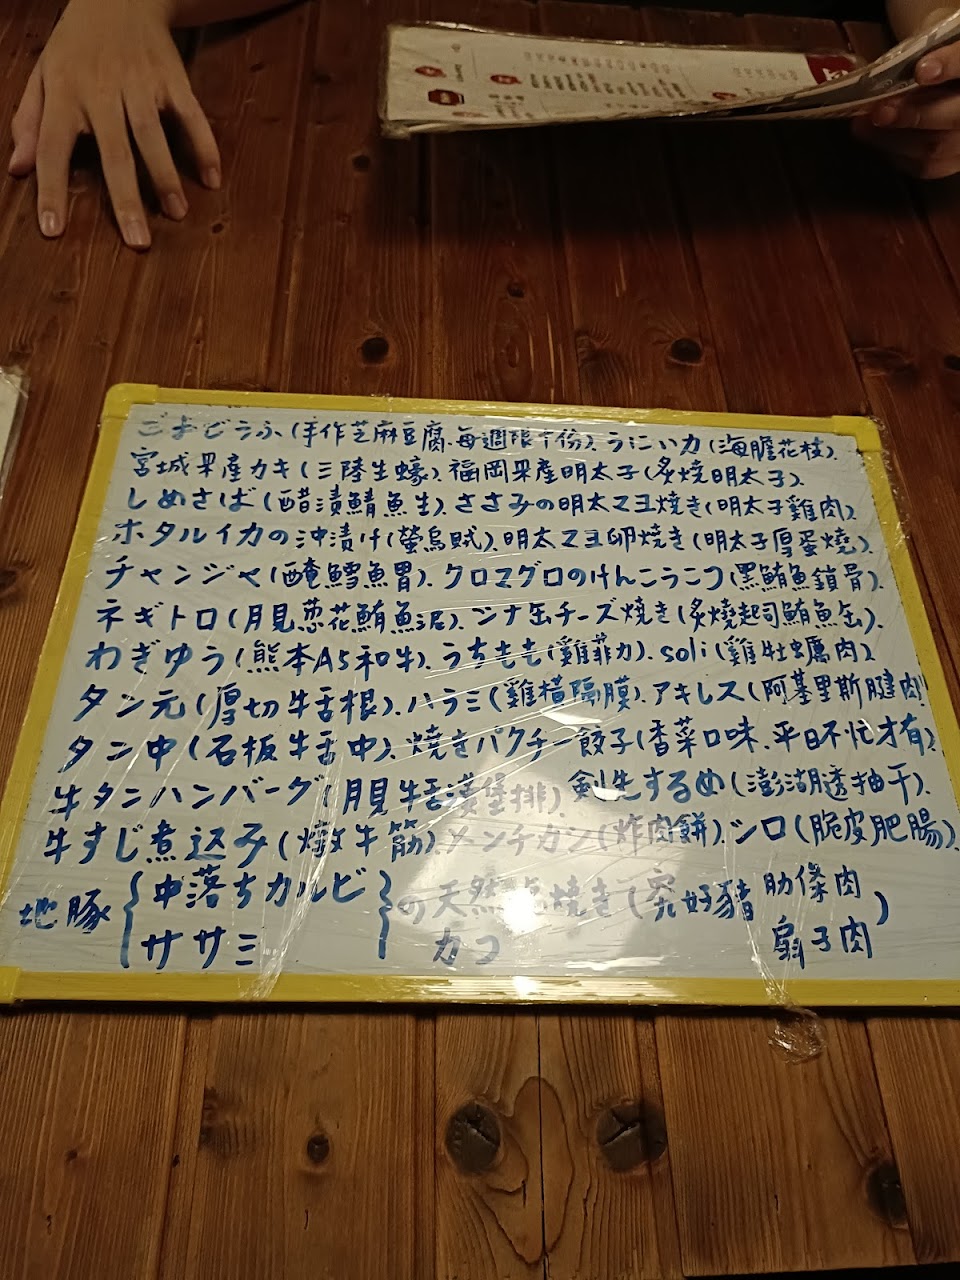 ごまどうふ(手作芝麻豆腐.每週限十份).うにいカ(海膽花枝).
宮城県産カキ(三陸生蠔).福岡県産明太子(炙燒明太子).
しめさば(醋漬鯖魚生).ささみの明太マヨ焼き(明太子雞肉).
ホタルイカの沖漬け(螢烏賊).明太マヨ卵焼き(明太子厚蛋燒).
チャンジャ(醃鱈魚胃).クロマグロのけんこうこつ(黑鮪魚鎖骨).
ネギトロ(月見葱花鮪魚泥).シナ缶チーズ焼き(炙燒起司鮪魚缶).
わぎゆう(熊本A5和牛).うちもも(雞菲力).soli(雞牡蠣肉).
タン元(厚切牛舌根).ハラミ(雞橫隔膜).アキレス(阿基里斯腱肉)
タン中(石板牛舌中).焼きパクチー餃子(香菜口味.平日不忙才有).
牛タンハンバーグ(月見牛舌漢堡排) 剣先するめ(澎湖透抽干).
牛すじ煮込み(燉牛筋).メンチカツ(炸肉餅).シロ(脆皮肥腸).
地豚{中落ちカルビ ササミ カコ}の天然塩焼き(究好豬肋條肉 扇子肉)